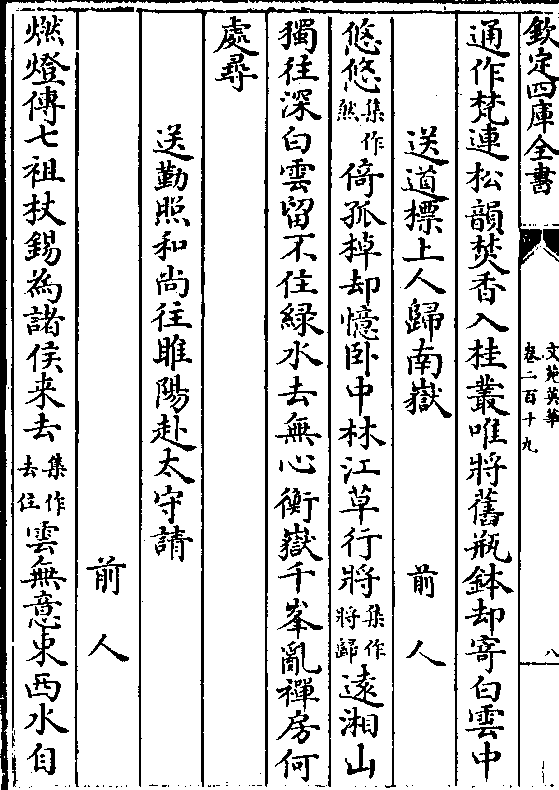 欽定四庫全書
文苑英華
卷二百十九
八
通作梵連松韻焚香入桂叢唯將舊瓶鉢却寄白雲中
送道標上人歸南嶽 前人
悠悠集作然倚孤棹却憶卧中林江草行將集作將歸遠湘山
獨往深白雲留不住緑水去無心衡嶽千峯亂禪房何
處尋
送勤照和尚往睢陽赴太守請
前人
燃燈傳七祖杖錫為諸侯来去集作去住雲無意東西水自